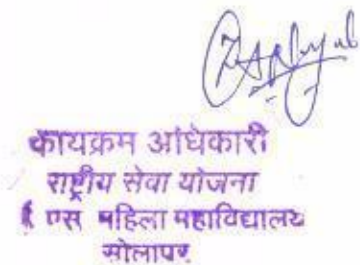 कार्यक्रम अधिकारी
राष्ट्रीय सेवा योजना
एस महिला महाविद्यालय
सोलापूर